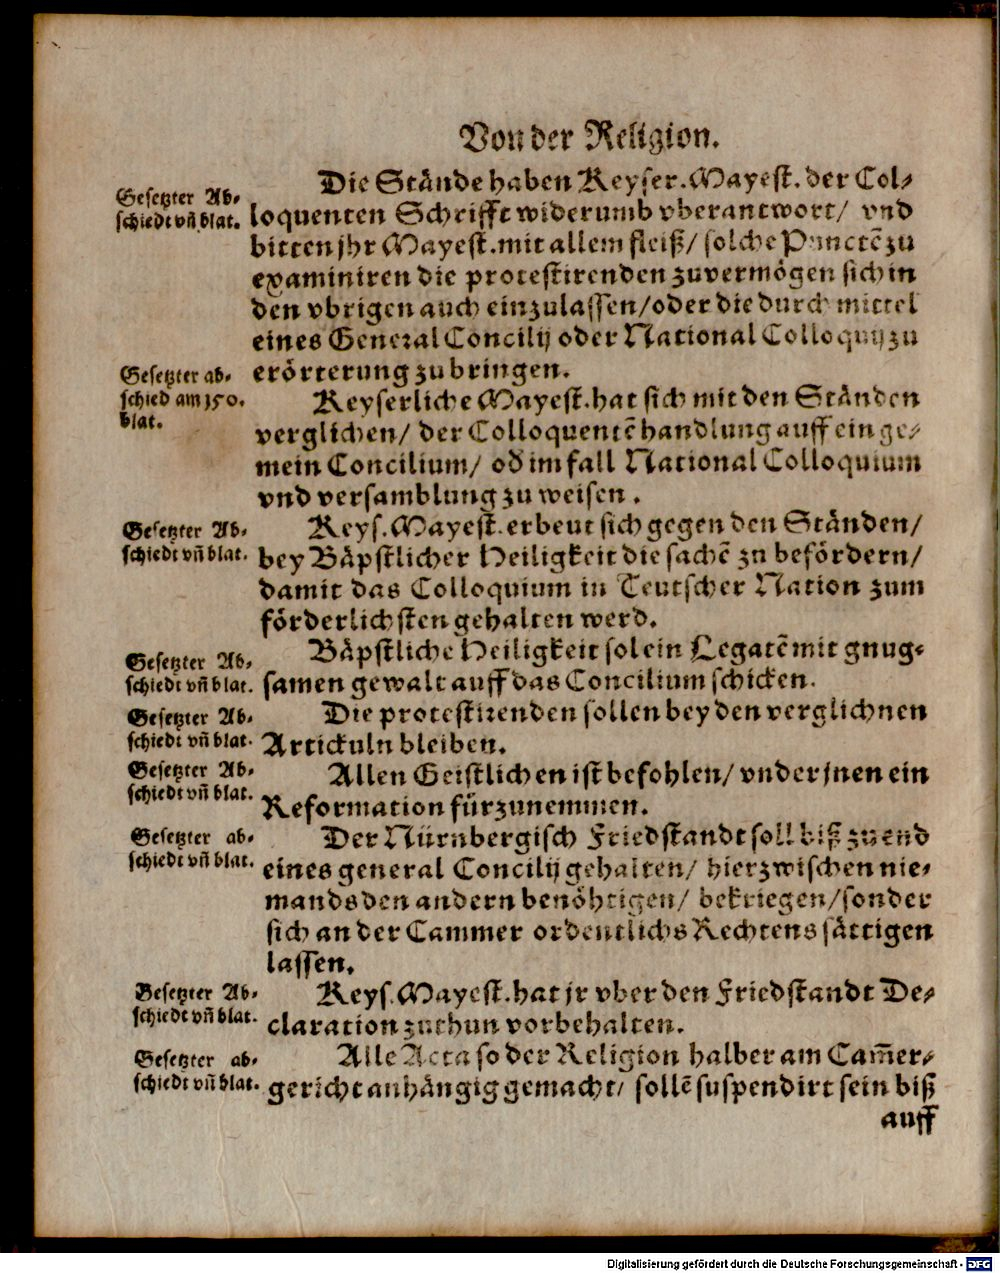 Von der Religion.
Gesetzter Ab-
schiedt vn̄ blat.
Die Stände haben Keyser. Mayest. der Col-
loquenten Schrifft widerumb vberantwort/ vnd
bitten jhr Mayest. mit allem fleiß/ solche Punctē zu
examiniren die protestirenden zuvermögen sich in
den vbrigen auch einzulassen/oder die durch mittel
eines General Concilij oder National Colloquij zu
erörterung zubringen.
Gesetzter ab-
schied am 150.
blat.
Keyserliche Mayest. hat sich mit den Ständen
verglichen/ der Colloquentē handlung auff ein ge-
mein Concilium/ od̄ im fall National Colloquium
vnd versamblung zu weisen.
Gesetzter Ab-
schiedt vn̄ blat.
Keys. Mayest. erbeut sich gegen den Ständen/
bey Bäpstlicher Heiligkeit die sachē zu befördern/
damit das Colloquium in Teutscher Nation zum
förderlichsten gehalten werd.
Gesetzter Ab-
schiedt vn̄ blat.
Bäpstliche Heiligkeit sol ein Legatē mit gnug-
samen gewalt auff das Concilium schicken.
Gesetzter Ab-
schiedt vn̄ blat.
Die protestirenden sollen bey den verglichnen
Artickuln bleiben.
Gesetzter Ab-
schiedt vn̄ blat.
Allen Geistlichen ist befohlen/ vnder jnen ein
Reformation fürzunemmen.
Gesetzter ab-
schiedt vn̄ blat.
Der Nürnbergisch Friedstandt soll biß zu end
eines general Concilij gehalten/ hierzwischen nie-
mands den andern benöhtigen/ bekriegen/sonder
sich an der Cammer ordentlichs Rechtens sättigen
lassen.
Gesetzter Ab-
schiedt vn̄ blat.
Keys. Mayest. hat jr vber den Friedstandt De-
claration zuthun vorbehalten.
Gesetzter ab-
schiedt vn̄ blat.
Alle Acta so der Religion halber am Cam̄er-
gericht anhängig gemacht/ sollē suspendirt sein biß
auff
Digitalisierung gefördert durch die Deutsche Forschungsgemeinschaft - DFG